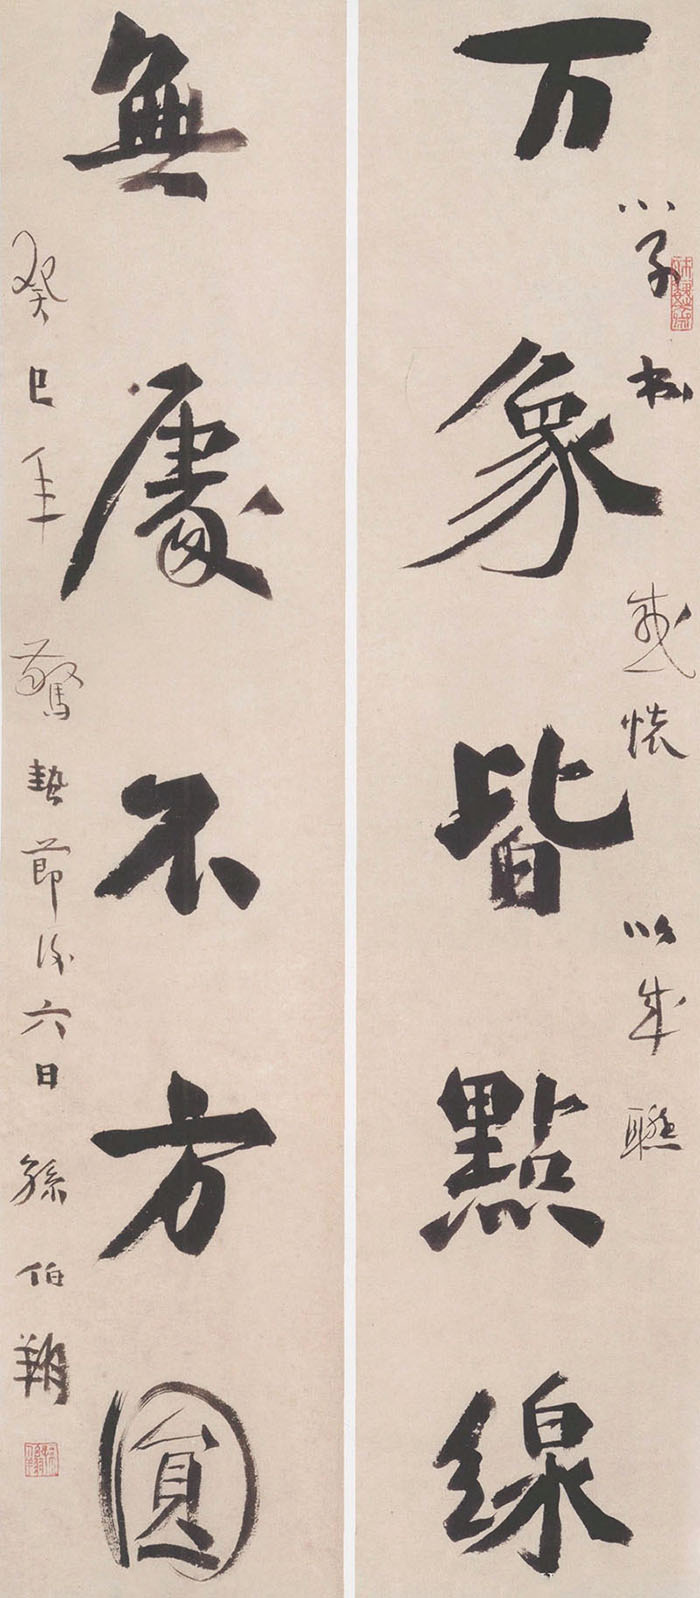 学书感懷以成聯
万象皆點線
無處不方圓
癸巳年驚蟄節後六日孫伯翔